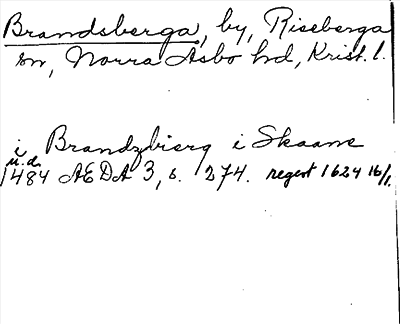 Brandsberga, by, Riseberga
sn, Norra Åsbo hd, Krist. l.
i Brandzbierg i Skaane
u.d.
1484 AEDA 3, s. 274. regest 1624 16/1.